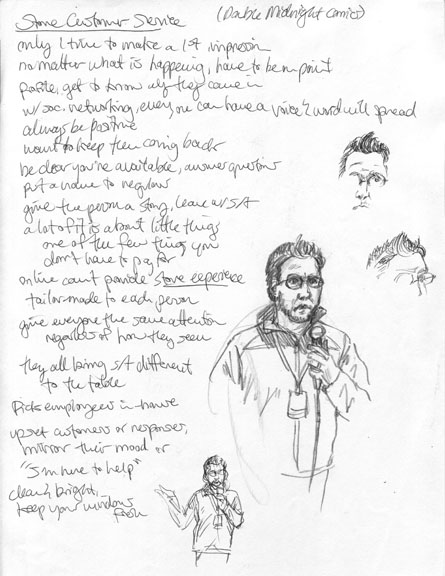 Store Customer Service (Double Midnight Comics)
only 1 time to make a 1st impression
no matter what is happening, have to be on point
polite, get to know why they came in
w/ soc. networking, everyone can have a voice & word will spread
always be positive
want to keep them coming back
be clear you're available, answer questions
put a name to regulars
give the person a story, leave w/ s/t
a lot of it is about little things
one of the few things you
don't have to pay for
online can't provide store experience
tailor-made to each person
give everyone the same attention
regardless of how they seem
they all bring s/t different
to the table
Picks employees in-house
upset customers or responses,
mirror their mood or
"I'm here to help"
clean & bright,
keep your windows
fresh